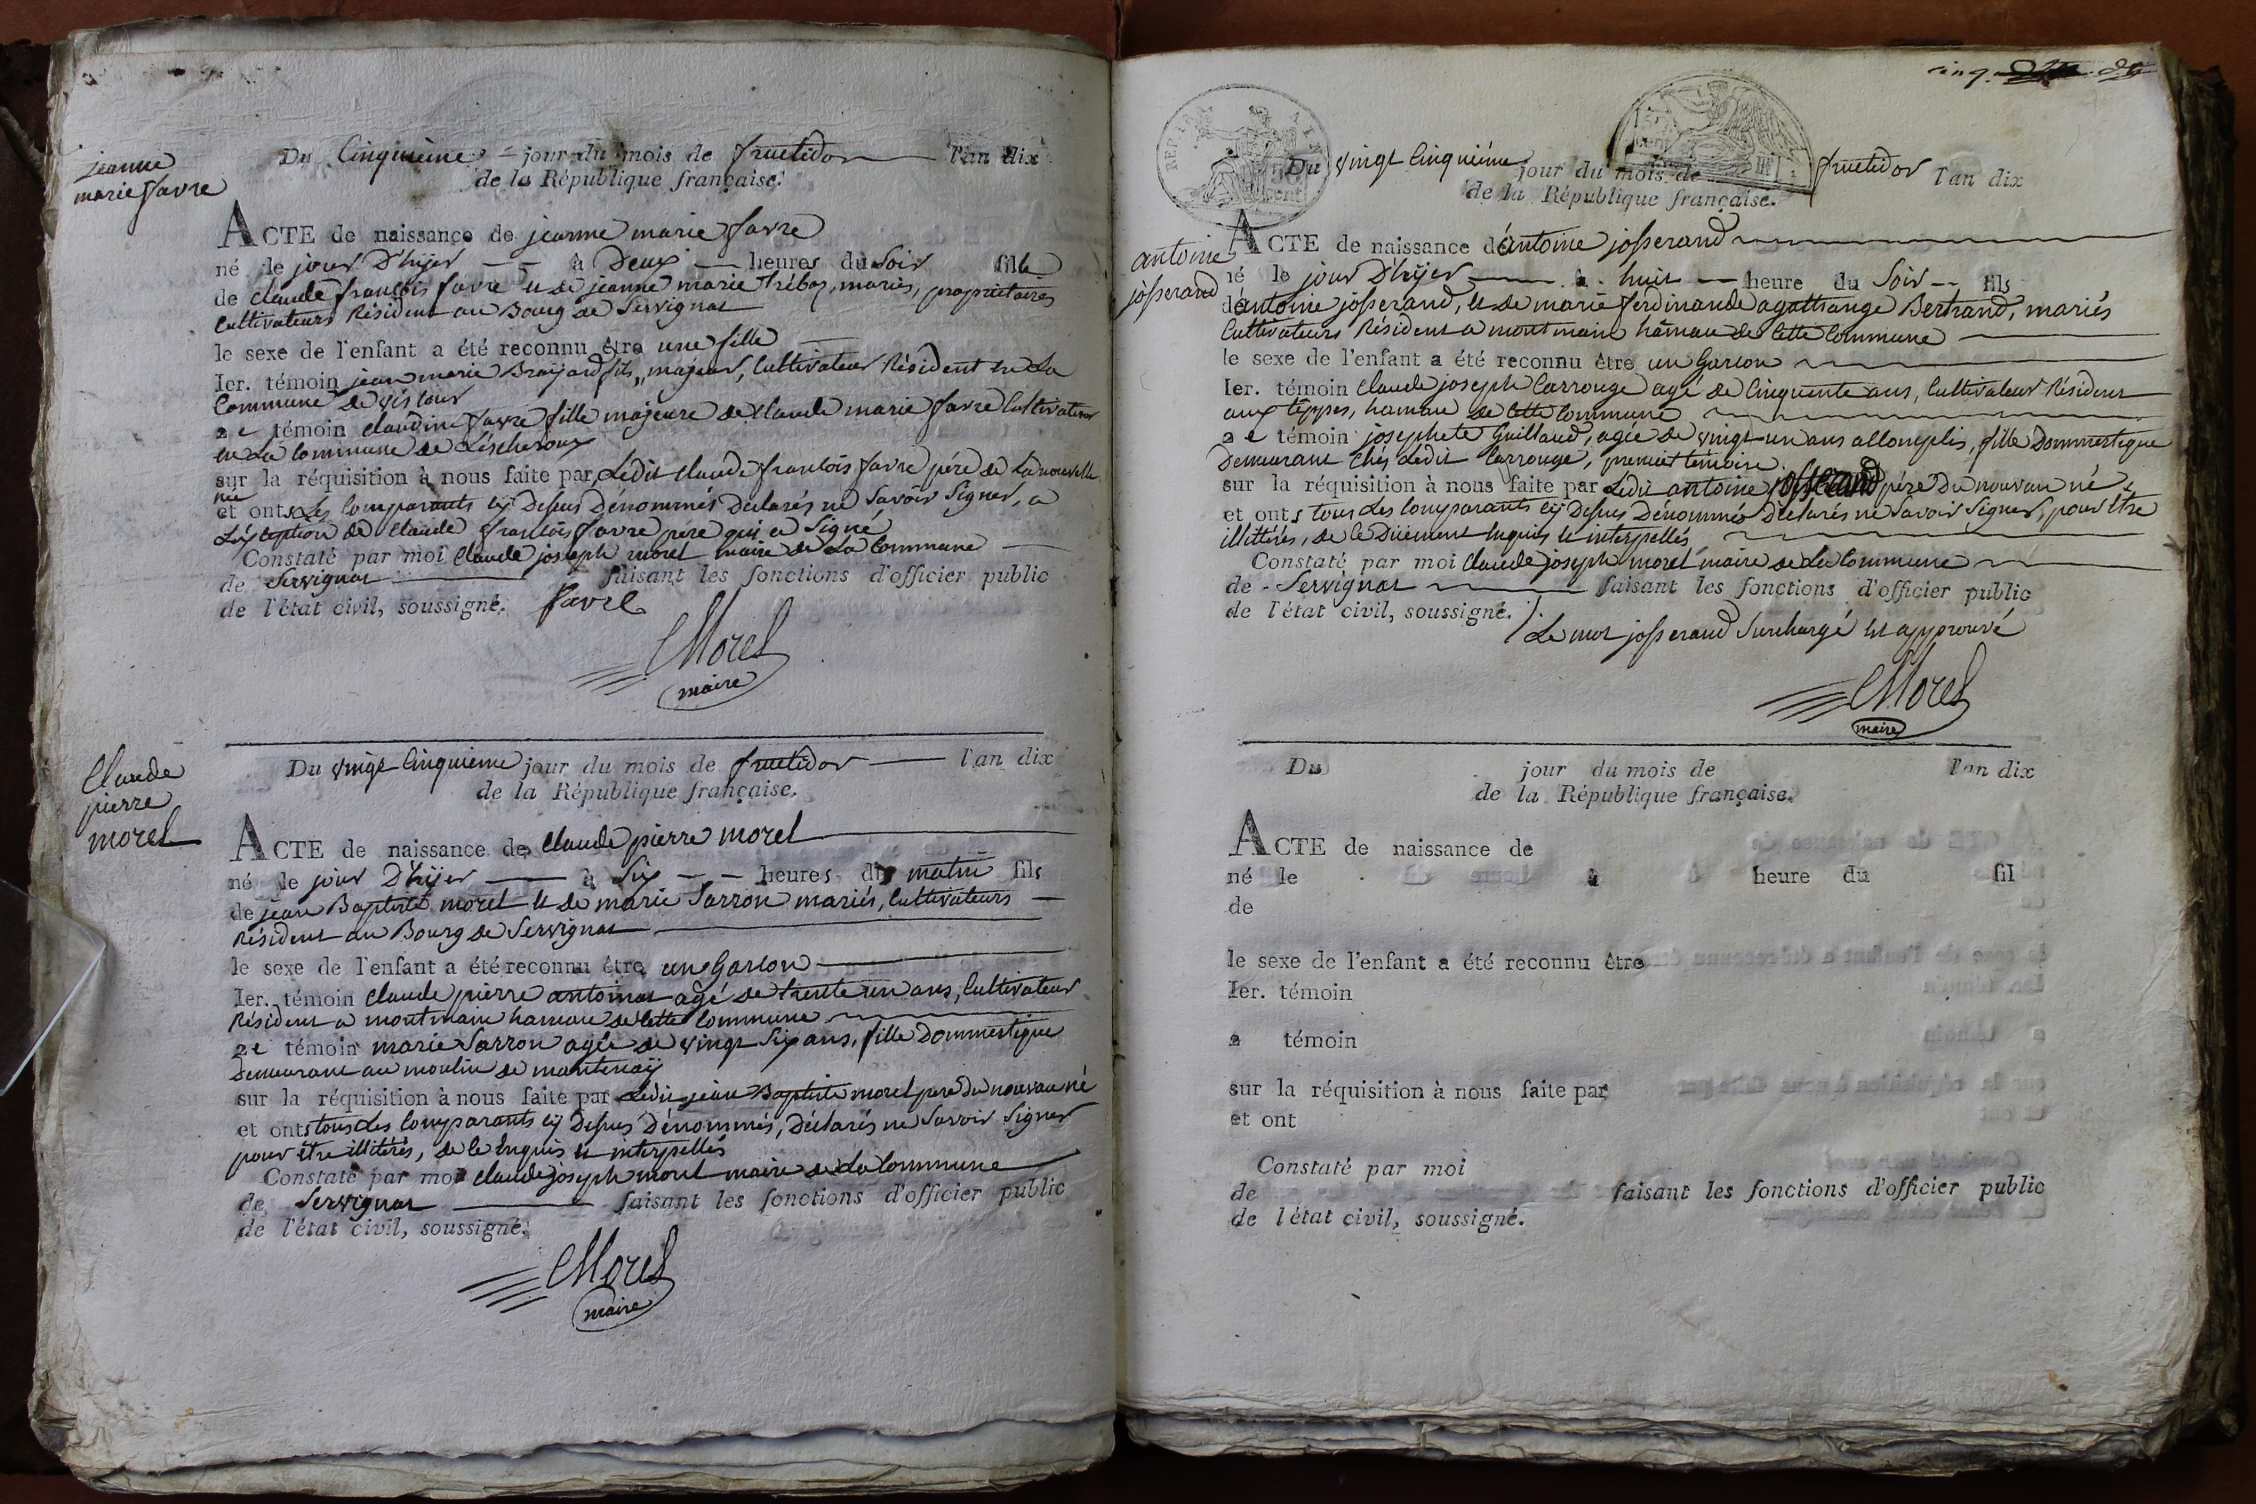 jeanne
marie favre
Du Cinquième jour du mois de fructidor l'an dix
de la République française.
ACTE de naissance de jeanne marie favre
né le jour D'hijer à Deux heures du Soir fille
de claude françois favre et de jeanne marie Tréboz, mariés, propriétaires
Cultivateurs Résident au Bourg de Servignat
le sexe de l'enfant a été reconnu être une fille
Ier. témoin jean marie Broyard fils, majeur, Cultivateur Résident en La
Commune de viscour
2e témoin claudine favre fille majeure de claude marie favre Cultivateur
en La Commune de Léscheroux
sur la réquisition à nous faite par Ledit claude françois favre père de La nouvelle
née
et ont Les Comparants cij Desus Dénommés Declarés ne Savoir Signer, a
L'éxception de claude françois favre père qui a Signé
Constaté par moi Claude joseph morel maire de La Commune
de Servignat faisant les fonctions d'officier public
de l'état civil, soussigné. favre
Morel
maire
Claude
pierre
morel
Du vingt Cinquieme jour du mois de fructidor l'an dix
de la République française.
ACTE de naissance de Claude pierre morel
né le jour D'hijer à Six heures du matin fils
de jean Baptiste morel et de marie Sarron mariés, Cultivateurs
Résident au Bourg de Servignat
le sexe de l'enfant a été reconnu être un Garson
Ier. témoin Claude pierre antoinat agé de trente un ans, Cultivateur
Résident a montmain hameau de Cette Commune
2e témoin marie Sarron agée de vingt Six ans, fille Dommestique
Demeurant au moulin de montenaÿ
sur la réquisition à nous faite par Ledit jean Baptiste morel pere du nouveau né
et onts tous Les Comparants cij Desus Dénommés, Déclarés ne Savoir Signer
pour être illitérés, de Ce Enquis et interpellés
Constaté par moi claude joseph morel maire de La Commune
de Servignat faisant les fonctions d'officier public
de l'état civil, soussigné.
Morel
maire
cinq.
Du vingt Cinquiéme jour du mois de fructidor l'an dix
de la République française.
antoine
josserand
ACTE de naissance d'antoine josserand
né le jour D'hijer à huit heure du Soir fils
d'antoine josserand, et de marie ferdinande agathange Bertrand, mariés
Cultivateurs Résident a montmain hameau de Cette Commune
le sexe de l'enfant a été reconnu être un Garson
Ier. témoin Claude joseph Carrouge agé de Cinquente ans, Cultivateur Résident
aux teppes, hameau de Cette Commune
2e témoin josephete Guillaud, agée de vingt un ans accomplis, fille Dommestique
Demeurant chés Ledit Carrouge, premier témoire
sur la réquisition à nous faite par Ledit antoine josserand père Du nouveau né
et onts tous Les Comparants cij Desus Dénommés Déclarés ne Savoir Signer, pour être
illittérés, de Ce Duement Enquis et interpellés
Constaté par moi Claude joseph morel maire de La Commune
de Servignat faisant les fonctions d'officier public
de l'état civil, soussigné.
Le mot josserand Surchargé Est approuvé
Morel
maire
Du jour du mois de l'an dix
de la République française.
ACTE de naissance de
né le à heure du fil
de
le sexe de l'enfant a été reconnu être
Ier. témoin
2 témoin
sur la réquisition à nous faite par
et ont
Constaté par moi
de faisant les fonctions d'officier public
de l'état civil, soussigné.